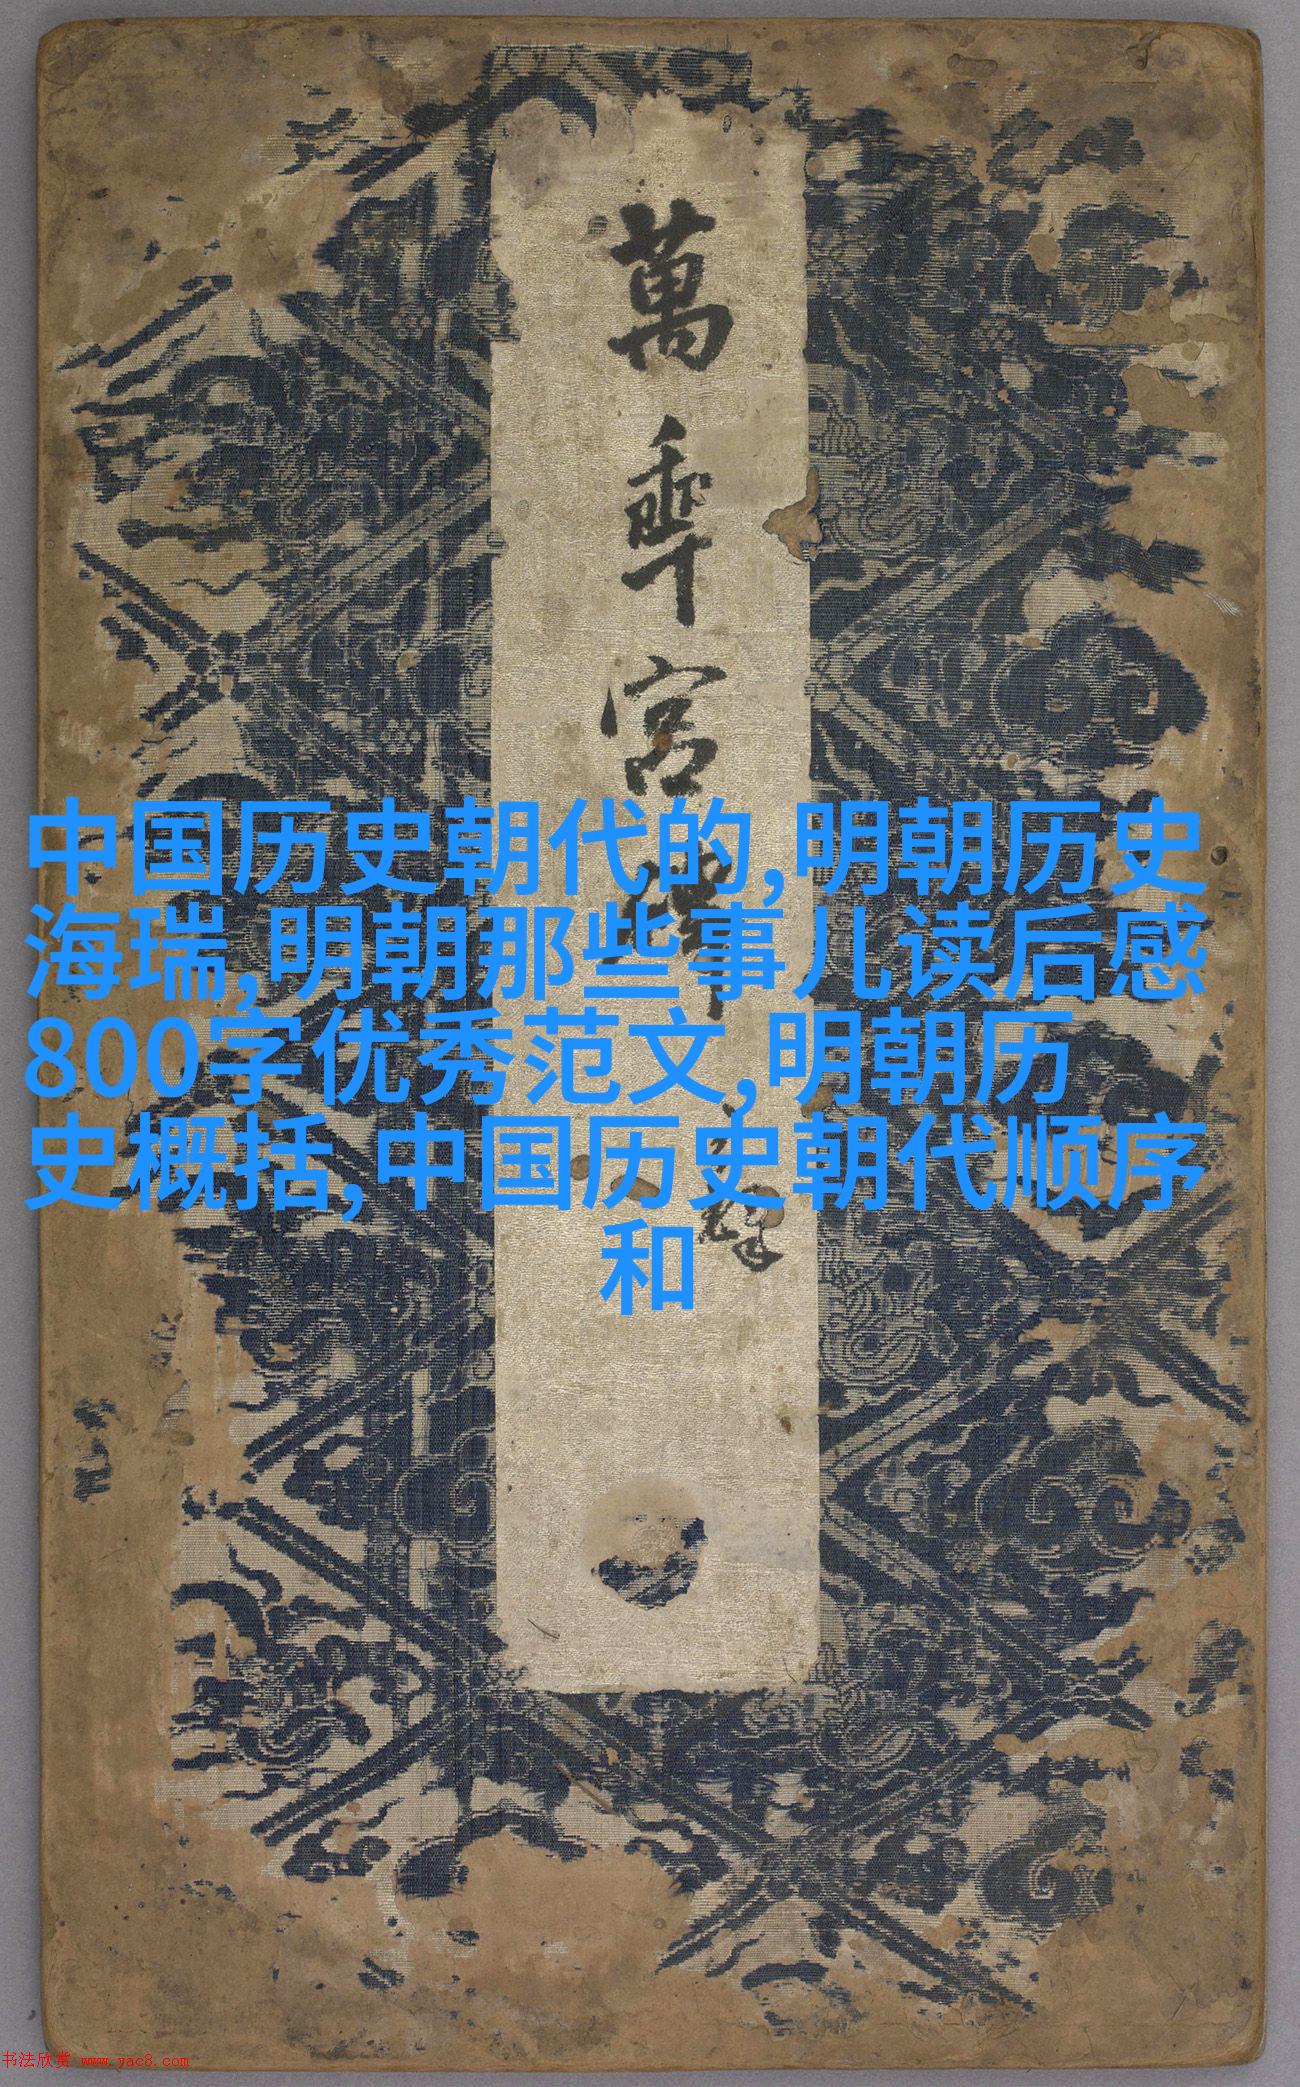 萬年宮
中国历史朝代的,明朝历史
海瑞,明朝那些事儿读后感
800字优秀范文,明朝历
史概括,中国历史朝代顺序
和
书法欣赏 www.yac8.com